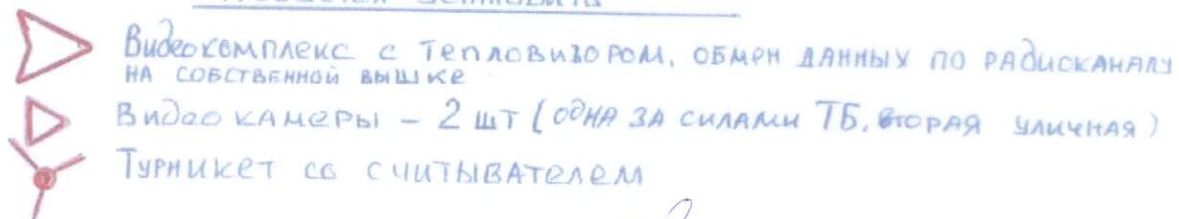 Видеокомплекс с тепловизором, обмен данных по радиоканалу
на собственной вышке
Видео камеры - 2 шт (одна за силами ТБ, вторая уличная)
Турникет со считывателем